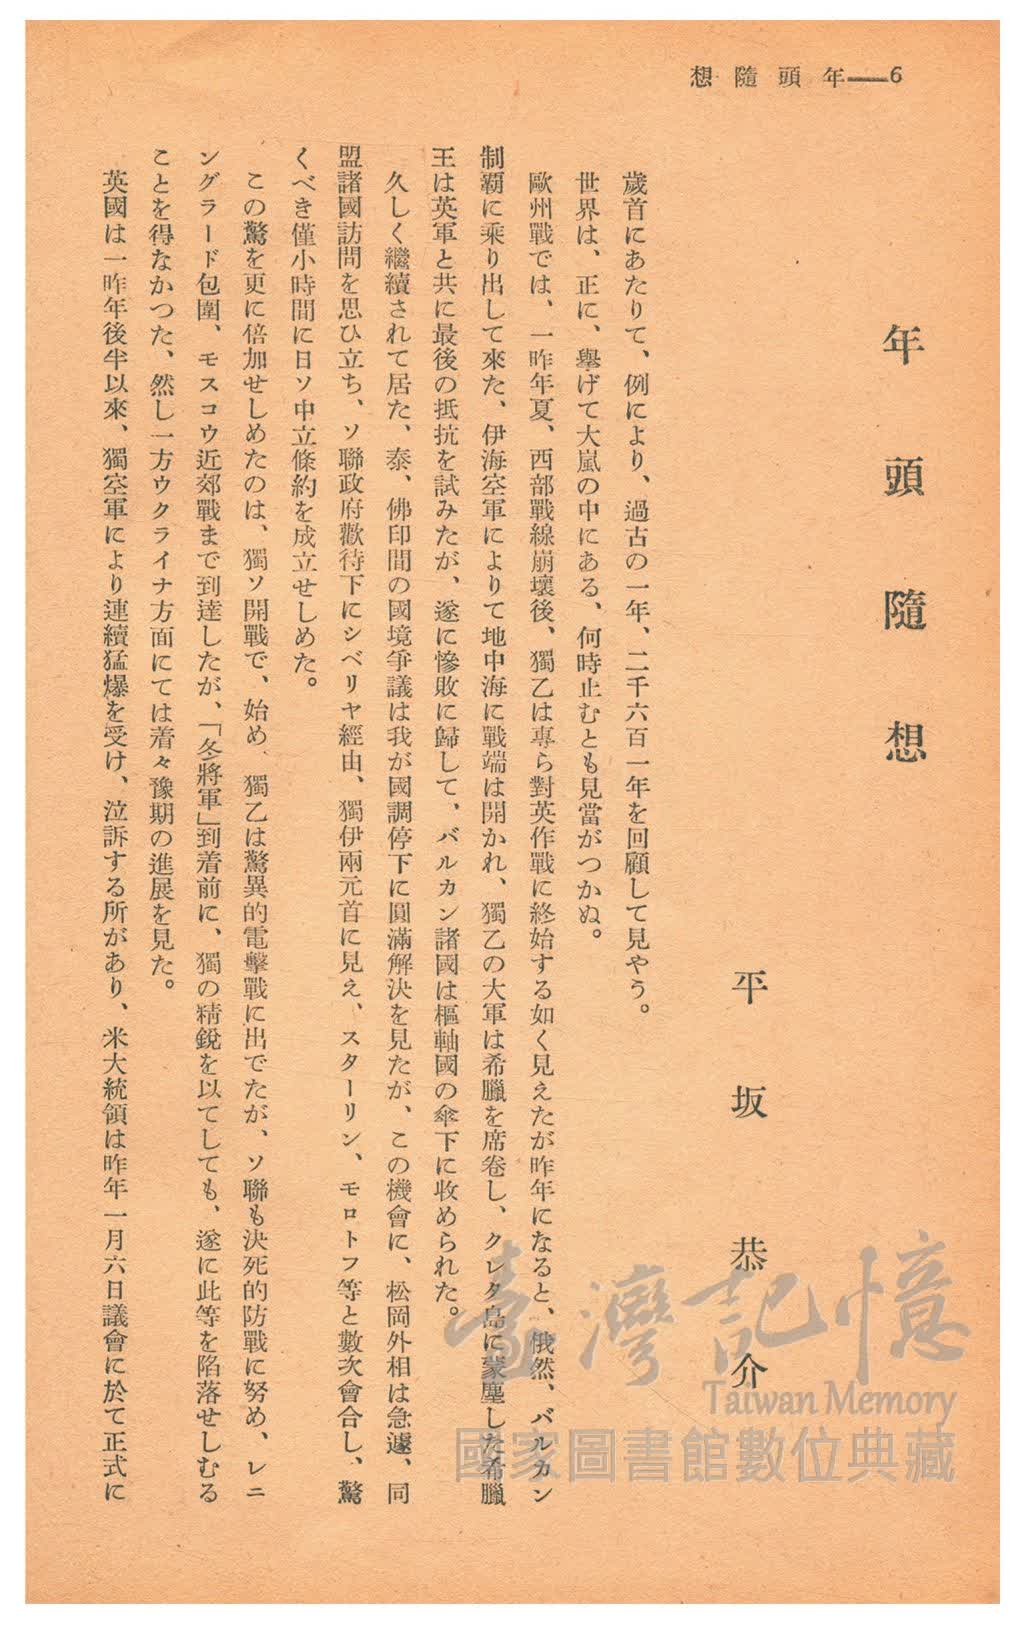 想隨頭年——6
年頭隨想
平坂恭介
歲首にあたりて、例により、過古の一年、二千六百一年を回顧して見やう。
世界は、正に、擧げて大嵐の中にある、何時止むとも見當がつかぬ。
歐州戰では、一昨年夏、西部戰線崩壞後、獨乙は專ら對英作戰に終始する如く見えたが昨年になると、俄然、バルカン
制覇に乘り出して來た、伊海空軍によりて地中海に戰端は開かれ、獨乙の大軍は希臘を席卷し、クレタ島に蒙塵した希臘
王は英軍と共に最後の抵抗を試みたが、遂に慘敗に歸して、バルカン諸國は樞軸國の傘下に收められた。
久しく繼續されて居た、泰、佛印間の國境爭議は我が國調停下に圓滿解決を見たが、この機會に、松岡外相は急遽、同
盟諸國訪問を思ひ立ち、ソ聯政府歡待下にシベリヤ經由、獨伊兩元首に見え、スターリン、モロトフ等と數次會合し、驚
くべき僅小時間に日ソ中立條約を成立せしめた。
この驚を更に倍加せしめたのは、獨ソ開戰で、始め、獨乙は驚異的電擊戰に出でたが、ソ聯も決死的防戰に努め、レニ
ングラード包圍、モスコウ近郊戰まで到達したが、「冬將軍」到着前に、獨の精銳を以てしても、遂に此等を陷落せしむる
ことを得なかつた、然し一方ウクライナ方面にては着々豫期の進展を見た。
英國は一昨年後半以來、獨空軍により連續猛爆を受け、泣訴する所があり、米大統領は昨年一月六日議會に於て正式に
臺灣記憶
Taiwan Memory
國家圖書館數位典藏